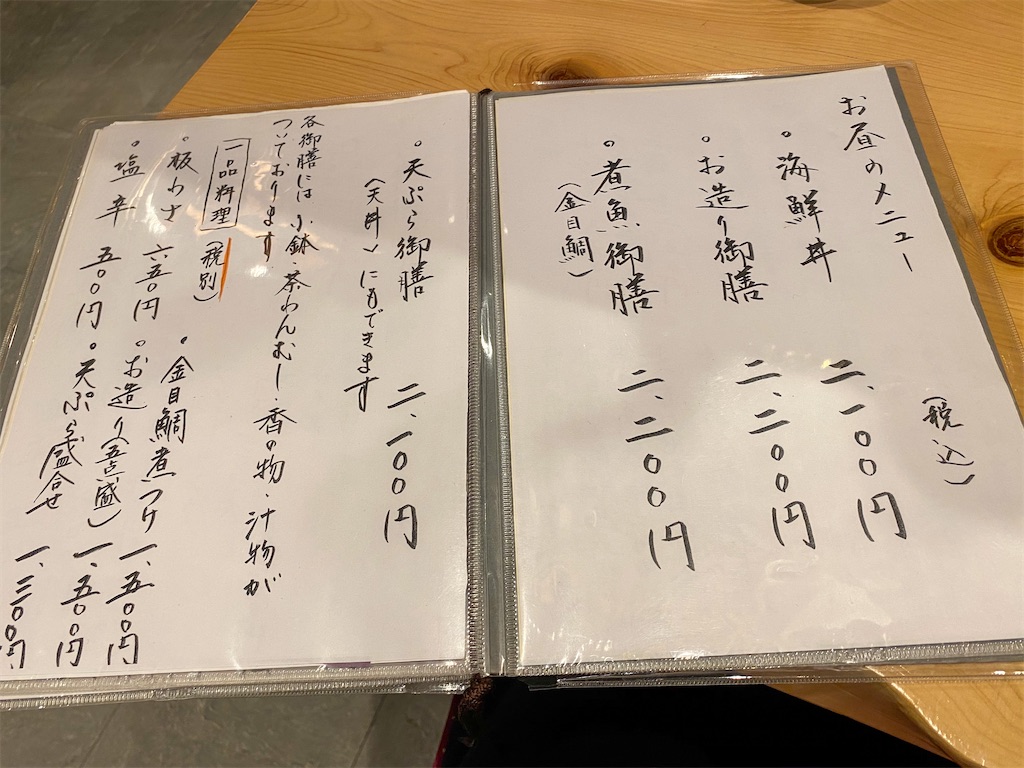 お昼のメニュー
（税込）
。海鮮丼 二、一〇〇円
。お造り御膳 二、二〇〇円
。煮魚御膳 二、二〇〇円
（金目鯛）
。天ぷら御膳 二、一〇〇円
（天丼）にもできます
各御膳には 小鉢・茶わんむし・香の物・汁物が
ついております
一品料理 （税別）
。板わさ 六五〇円
。塩辛 五〇〇円
。金目鯛煮つけ 一、五〇〇円
。お造り（五点盛） 一、五〇〇円
。天ぷら盛合せ 一、三〇〇円